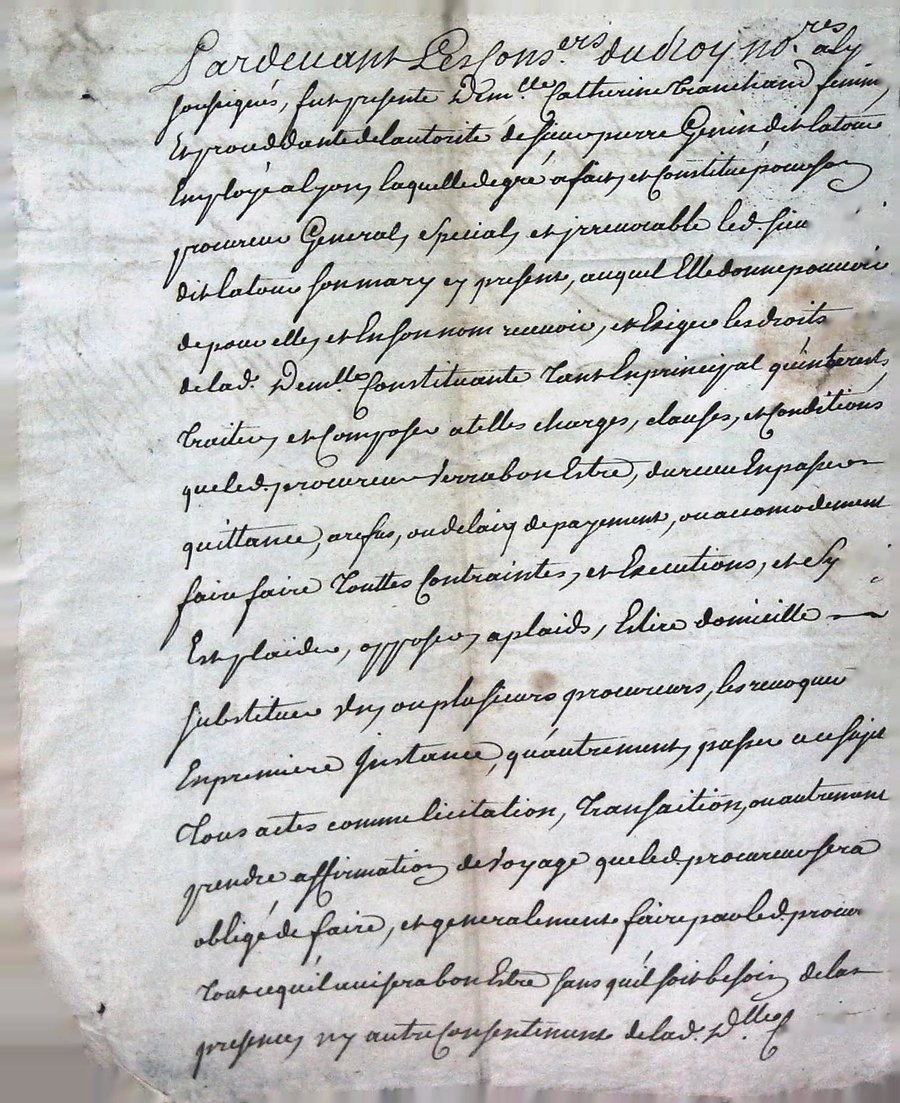 Pardevant Les Cons.ers du Roy no.res a Ly
soussignés, fut presente Dem.lle Catherine Tranchand femme,
Et proceddante de l'autorité de sieur pierre Genin dit latour
Employé a lyon, laquelle de gré a fait, et Constitué pour son
procureur General, special, et jrrevocable led. sieur
dit latour son mary cy present, auquel Elle donne pouvoir
de pour elle, et En son nom recevoir, et Exiger les droits
de lad. Dem.lle Constituante Tant En principal qu'interests,
Traiter, et Composer a telles charges, clauses, et Conditions
que led. procureur Verra bon Estre, du receu En passer
quittance, a refus, ou delaiy de payement, ou accomodement
faire faire Touttes Contraintes, et Executions, et sy
Est plaider, opposer, a plaids, Eslire domicille
substituer Vn, ou plusieurs procureurs, les revoquer
En premiere Jnstance, qu'autrement, passer a ce sujet
Tous actes comme licitation, Transaition, ou autrement
prendre affirmation de Voyage que led. procureur sera
obligé de faire, et generalement faire par led. procur
Tout ce qu'il avisera bon Estre sans qu'il soit besoin de la
presence, ny autre Consentement de lad. D.lle